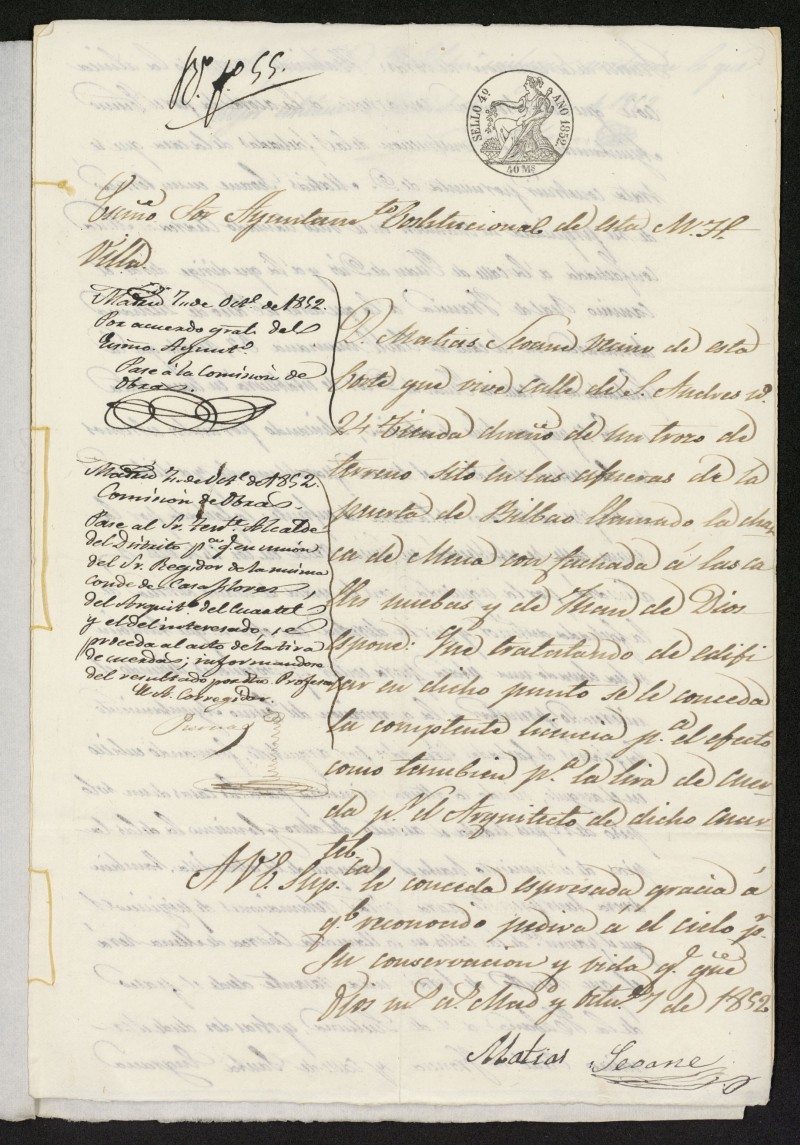 SELLO 4º AÑO 1852.
40 Ms
Ecsmo. Sor Ayuntamto. Costitucional de esta M. H.
Villa.
Madrid 7 de Octe. de 1852.
Por acuerdo gral. del
Ecsmo. Ayuntº.
Pase á la Comision de
Obras.
Madrid 7 de Octe. de 1852.
Comision de Obras.
Pase al Sr. Tente. Alcalde
del Distrito pa. q. en union
del Sr. Regidor de la misma
Conde de Casaflores,
del Arquito. del Cuartel
y el del interesado, se
proceda al acto de la tira
de cuerdas; informandose
del resultado por dho. Profesor
El A. Corregidor.
D. Matias Seoane vecino de esta
Corte que vive calle de S. Andres nº.
24 tienda dueño de un trozo de
terreno sito en las afueras de la
puerta de Bilbao llamado la char
ca de Mena con fachada á las ca
lles nuebas y de Juan de Dios
espone: Que tratando de edifi
car en dicho punto se le conceda
la competente licencia pa. el efecto
como tambien pa. la tira de cuer
da pr. el Arquitecto de dicho cuar
tel
A V.E. Supca. le conceda espresada gracia á
qe. reconocido pedira á el cielo pr.
su conservacion y vida q. gue.
Dios ms. as. Madd. y Octue. 7 de 1852
Matias Seoane